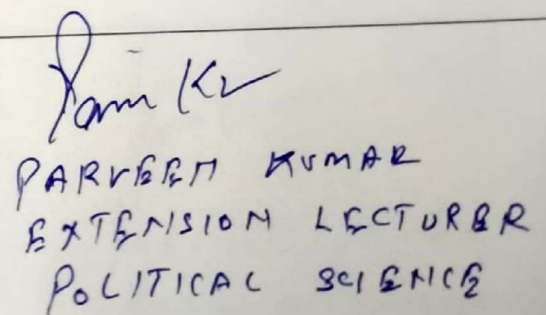 Parveen Kr
PARVEEN KUMAR
EXTENSION LECTURER
POLITICAL SCIENCE